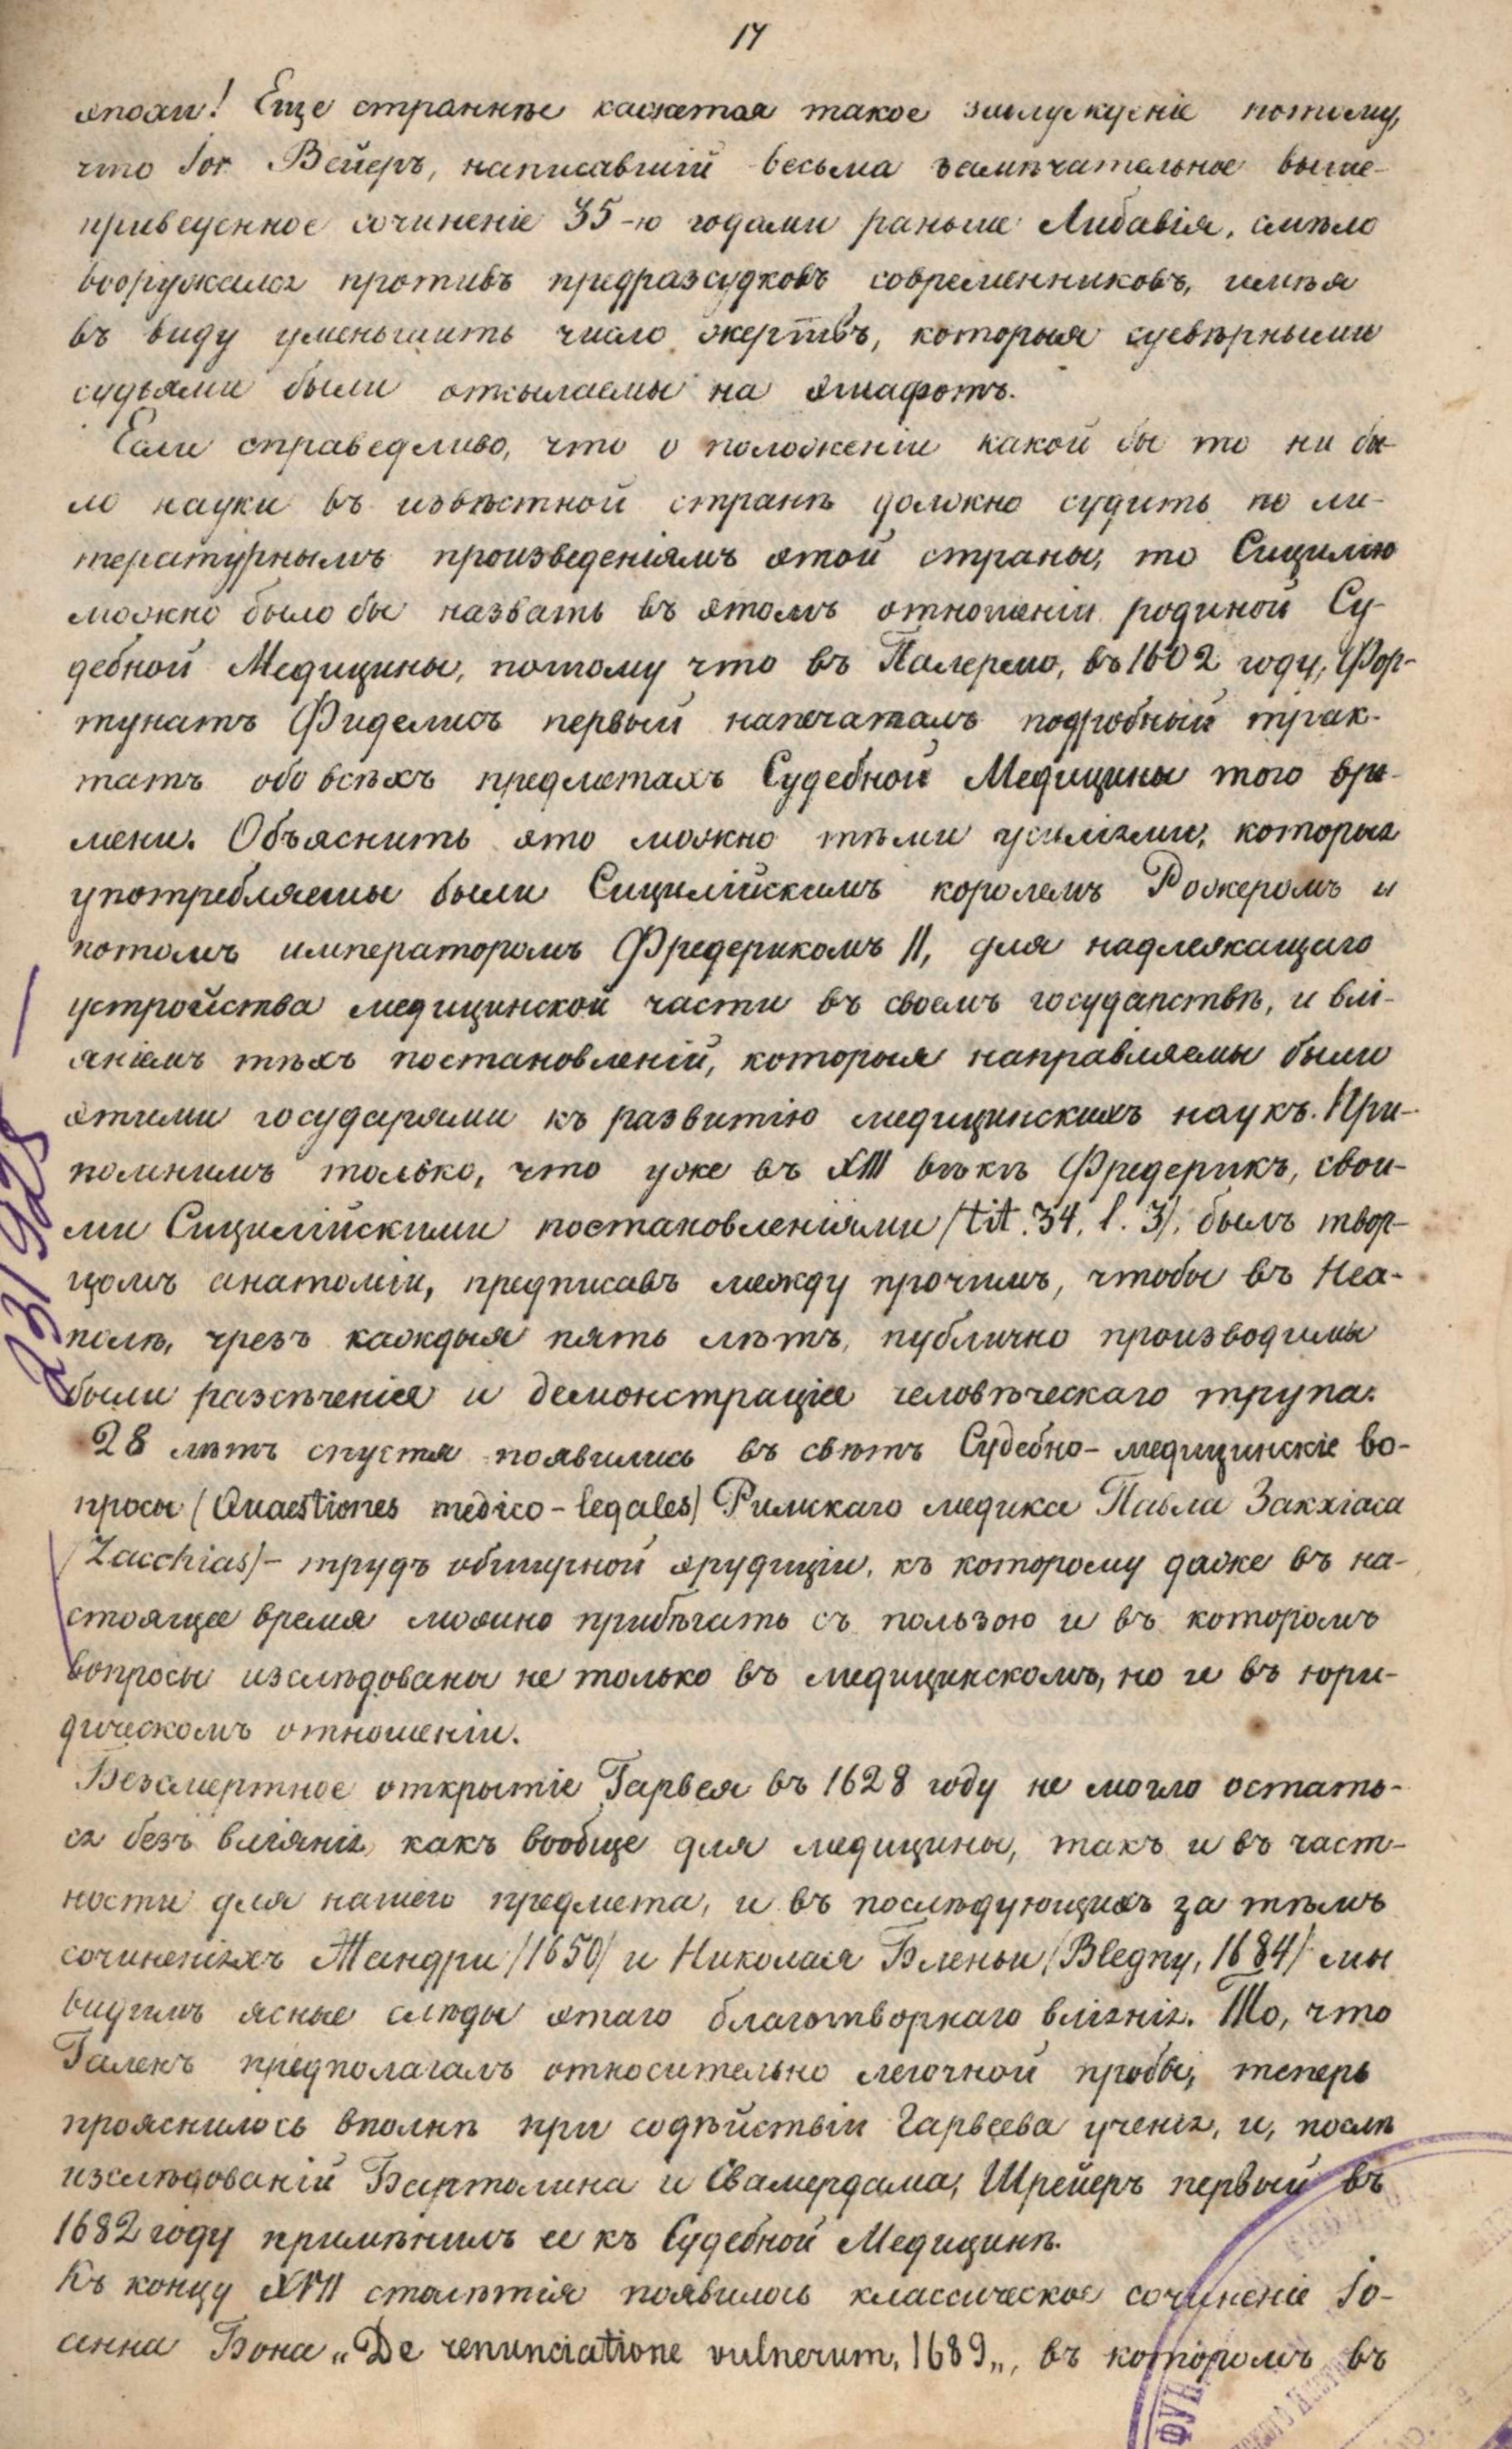 17
эпохи! Еще страннѣе кажется такое заблужденіе потому,
что Іог. Вейеръ, написавшій весьма замѣчательное выше-
приведенное сочиненіе 35-ю годами раньше Либавія, смѣло
вооружался противъ предразсудковъ современниковъ, имѣя
въ виду уменьшить число жертвъ, которыя суевѣрными
судьями были отсылаемы на эшафотъ.
Если справедливо, что о положеніи какой бы то ни бы-
ло науки въ извѣстной странѣ должно судить по ли-
тературнымъ произведеніямъ этой страны, то Сицилію
можно было бы назвать въ этомъ отношеніи родиной Су-
дебной Медицины, потому что въ Палермо, въ 1602 году, Фор-
тунатъ Фиделисъ первый напечаталъ подробный трак-
татъ обо всѣхъ предметахъ Судебной Медицины того вре-
мени. Объяснить это можно тѣми усиліями, которыя
употребляемы были Сицилійскимъ королемъ Рожеромъ и
потомъ императоромъ Фредерикомъ II, для надлежащаго
устройства медицинской части въ своемъ государствѣ, и влі-
яніемъ тѣхъ постановленій, которыя направляемы были
этими государями къ развитію медицинскихъ наукъ. При-
помнимъ только, что уже въ XIII вѣкѣ Фредерикъ, свои-
ми Сицилійскими постановленіями (tit. 34. l. 3), былъ твор-
цомъ анатоміи, предписавъ между прочимъ, чтобы въ Неа-
полѣ, чрезъ каждыя пять лѣтъ, публично производимы
были разсѣченія и демонстраціи человѣческаго трупа.
28 лѣтъ спустя появились въ свѣтъ Судебно-медицинскіе во-
просы (Quaestiones medico-legales) Римскаго медика Павла Закхіаса
(Zacchias) - трудъ обширной эрудиціи, къ которому даже въ на-
стоящее время можно прибѣгать съ пользою и въ которомъ
вопросы изслѣдованы не только въ медицинскомъ, но и въ юри-
дическомъ отношеніи.
Безсмертное открытіе Гарвея въ 1628 году не могло остать-
ся безъ вліянія, какъ вообще для медицины, такъ и въ част-
ности для нашего предмета, и въ послѣдующихъ за тѣмъ
сочиненіяхъ Жандри (1650) и Николая Бленьи (Blegny, 1684) мы
видимъ ясные слѣды этаго благотворнаго вліянія. То, что
Галенъ предполагалъ относительно легочной пробы, теперь
прояснилось вполнѣ при содѣйствіи Гарвеева ученія, и, послѣ
изслѣдованій Бартолина и Свамердама, Шрейеръ первый въ
1682 году примѣнилъ ее къ Судебной Медицинѣ.
Къ концу XVII столѣтія появилось классическое сочиненіе Іо-
анна Бона „De renunciatione vulnerum, 1689„, въ которомъ въ